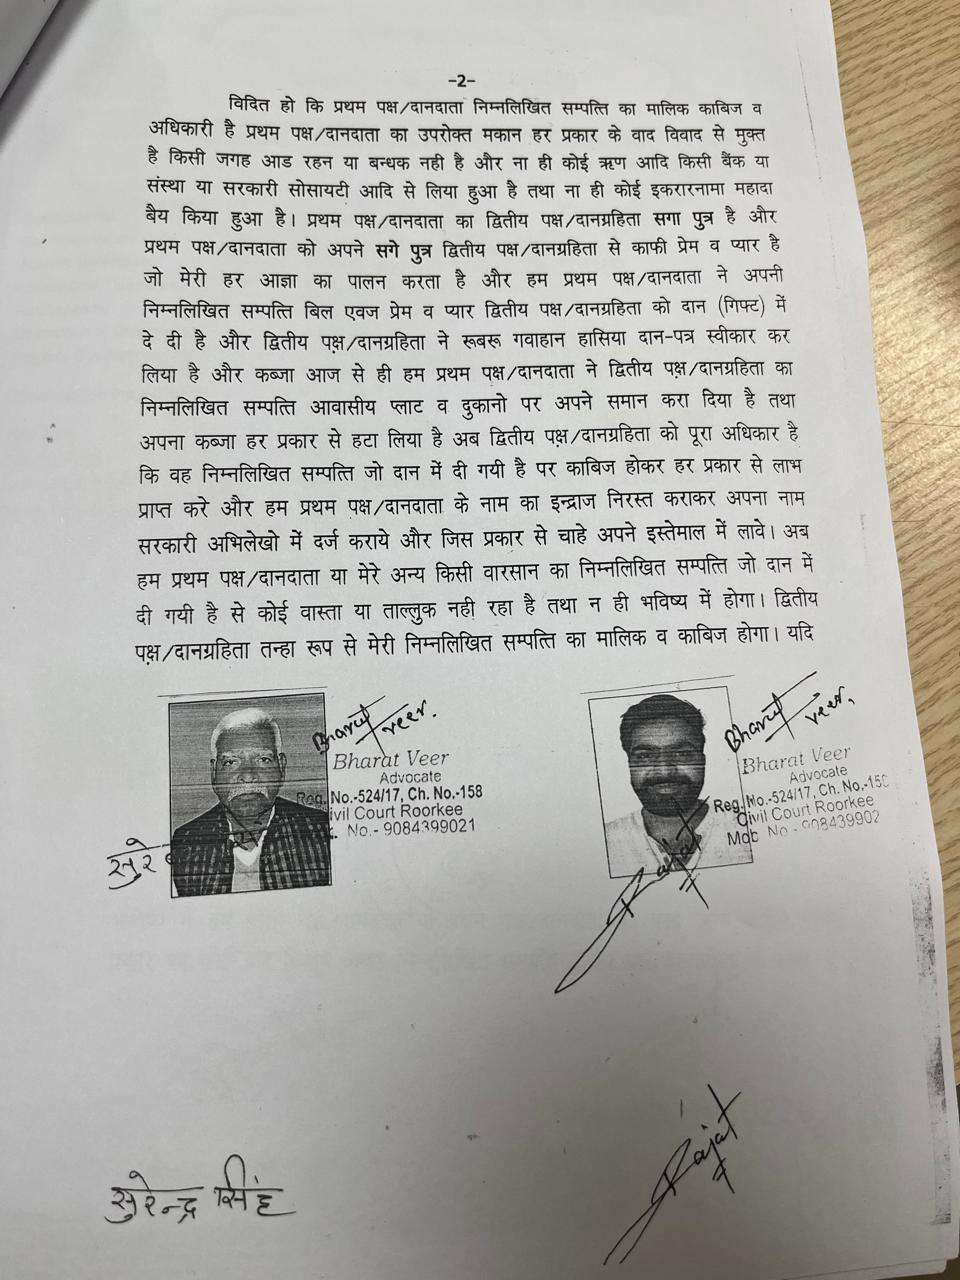 -2-
विदित हो कि प्रथम पक्ष/दानदाता निम्नलिखित सम्पत्ति का मालिक काबिज व
अधिकारी है प्रथम पक्ष/दानदाता का उपरोक्त मकान हर प्रकार के वाद विवाद से मुक्त
है किसी जगह आड रहन या बन्धक नही है और ना ही कोई ऋण आदि किसी बैंक या
संस्था या सरकारी सोसायटी आदि से लिया हुआ है तथा ना ही कोई इकरारनामा महादा
बैय किया हुआ है। प्रथम पक्ष/दानदाता का द्वितीय पक्ष/दानग्रहिता सगा पुत्र है और
प्रथम पक्ष/दानदाता को अपने सगे पुत्र द्वितीय पक्ष/दानग्रहिता से काफी प्रेम व प्यार है
जो मेरी हर आज्ञा का पालन करता है और हम प्रथम पक्ष/दानदाता ने अपनी
निम्नलिखित सम्पत्ति बिल एवज प्रेम व प्यार द्वितीय पक्ष/दानग्रहिता को दान (गिफ्ट) में
दे दी है और द्वितीय पक्ष/दानग्रहिता ने रूबरू गवाहान हासिया दान-पत्र स्वीकार कर
लिया है और कब्जा आज से ही हम प्रथम पक्ष/दानदाता ने द्वितीय पक्ष/दानग्रहिता का
निम्नलिखित सम्पत्ति आवासीय प्लाट व दुकानो पर अपने समान करा दिया है तथा
अपना कब्जा हर प्रकार से हटा लिया है अब द्वितीय पक्ष/दानग्रहिता को पूरा अधिकार है
कि वह निम्नलिखित सम्पत्ति जो दान में दी गयी है पर काबिज होकर हर प्रकार से लाभ
प्राप्त करे और हम प्रथम पक्ष/दानदाता के नाम का इन्द्राज निरस्त कराकर अपना नाम
सरकारी अभिलेखो में दर्ज कराये और जिस प्रकार से चाहे अपने इस्तेमाल में लावे। अब
हम प्रथम पक्ष/दानदाता या मेरे अन्य किसी वारसान का निम्नलिखित सम्पत्ति जो दान में
दी गयी है से कोई वास्ता या ताल्लुक नही रहा है तथा न ही भविष्य में होगा। द्वितीय
पक्ष/दानग्रहिता तन्हा रूप से मेरी निम्नलिखित सम्पत्ति का मालिक व काबिज होगा। यदि
Bharat Veer.
Bharat Veer
Advocate
Reg. No.-524/17, Ch. No.-158
ivil Court Roorkee
No.- 9084399021
सुरे
Bharat Veer.
Bharat Veer
Advocate
Reg. No.-524/17, Ch. No.-15
Civil Court Roorkee
Mob No - 908439902
Rajat
सुरेन्द्र सिंह
Rajat